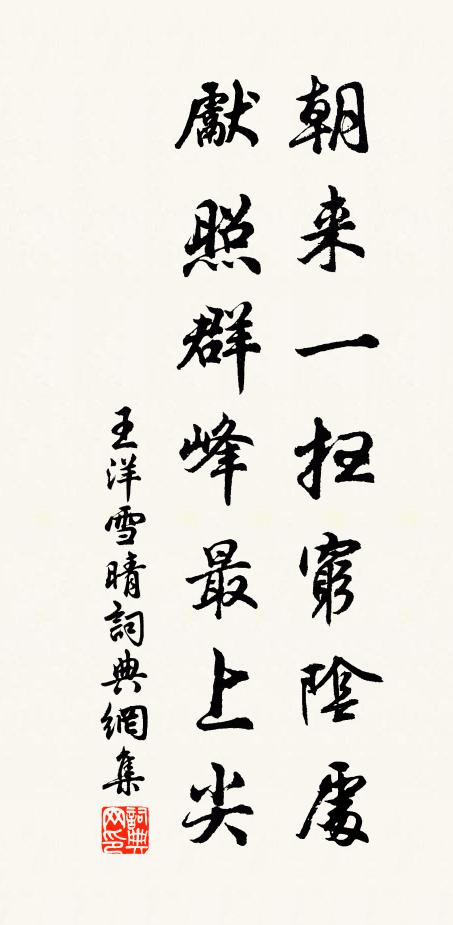 朝来一扫窮陰處
獻照群峰最上尖
王洋雪晴詞典網集
詞典
网印